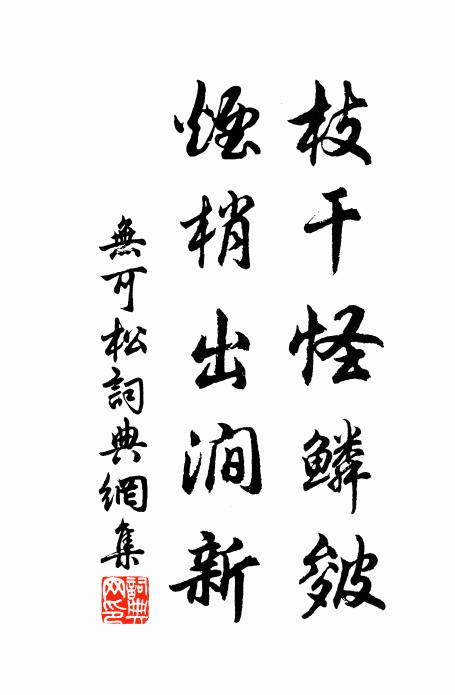 枝干怪鱗皴
煙梢出澗新
無可松詞典網集
詞典网印